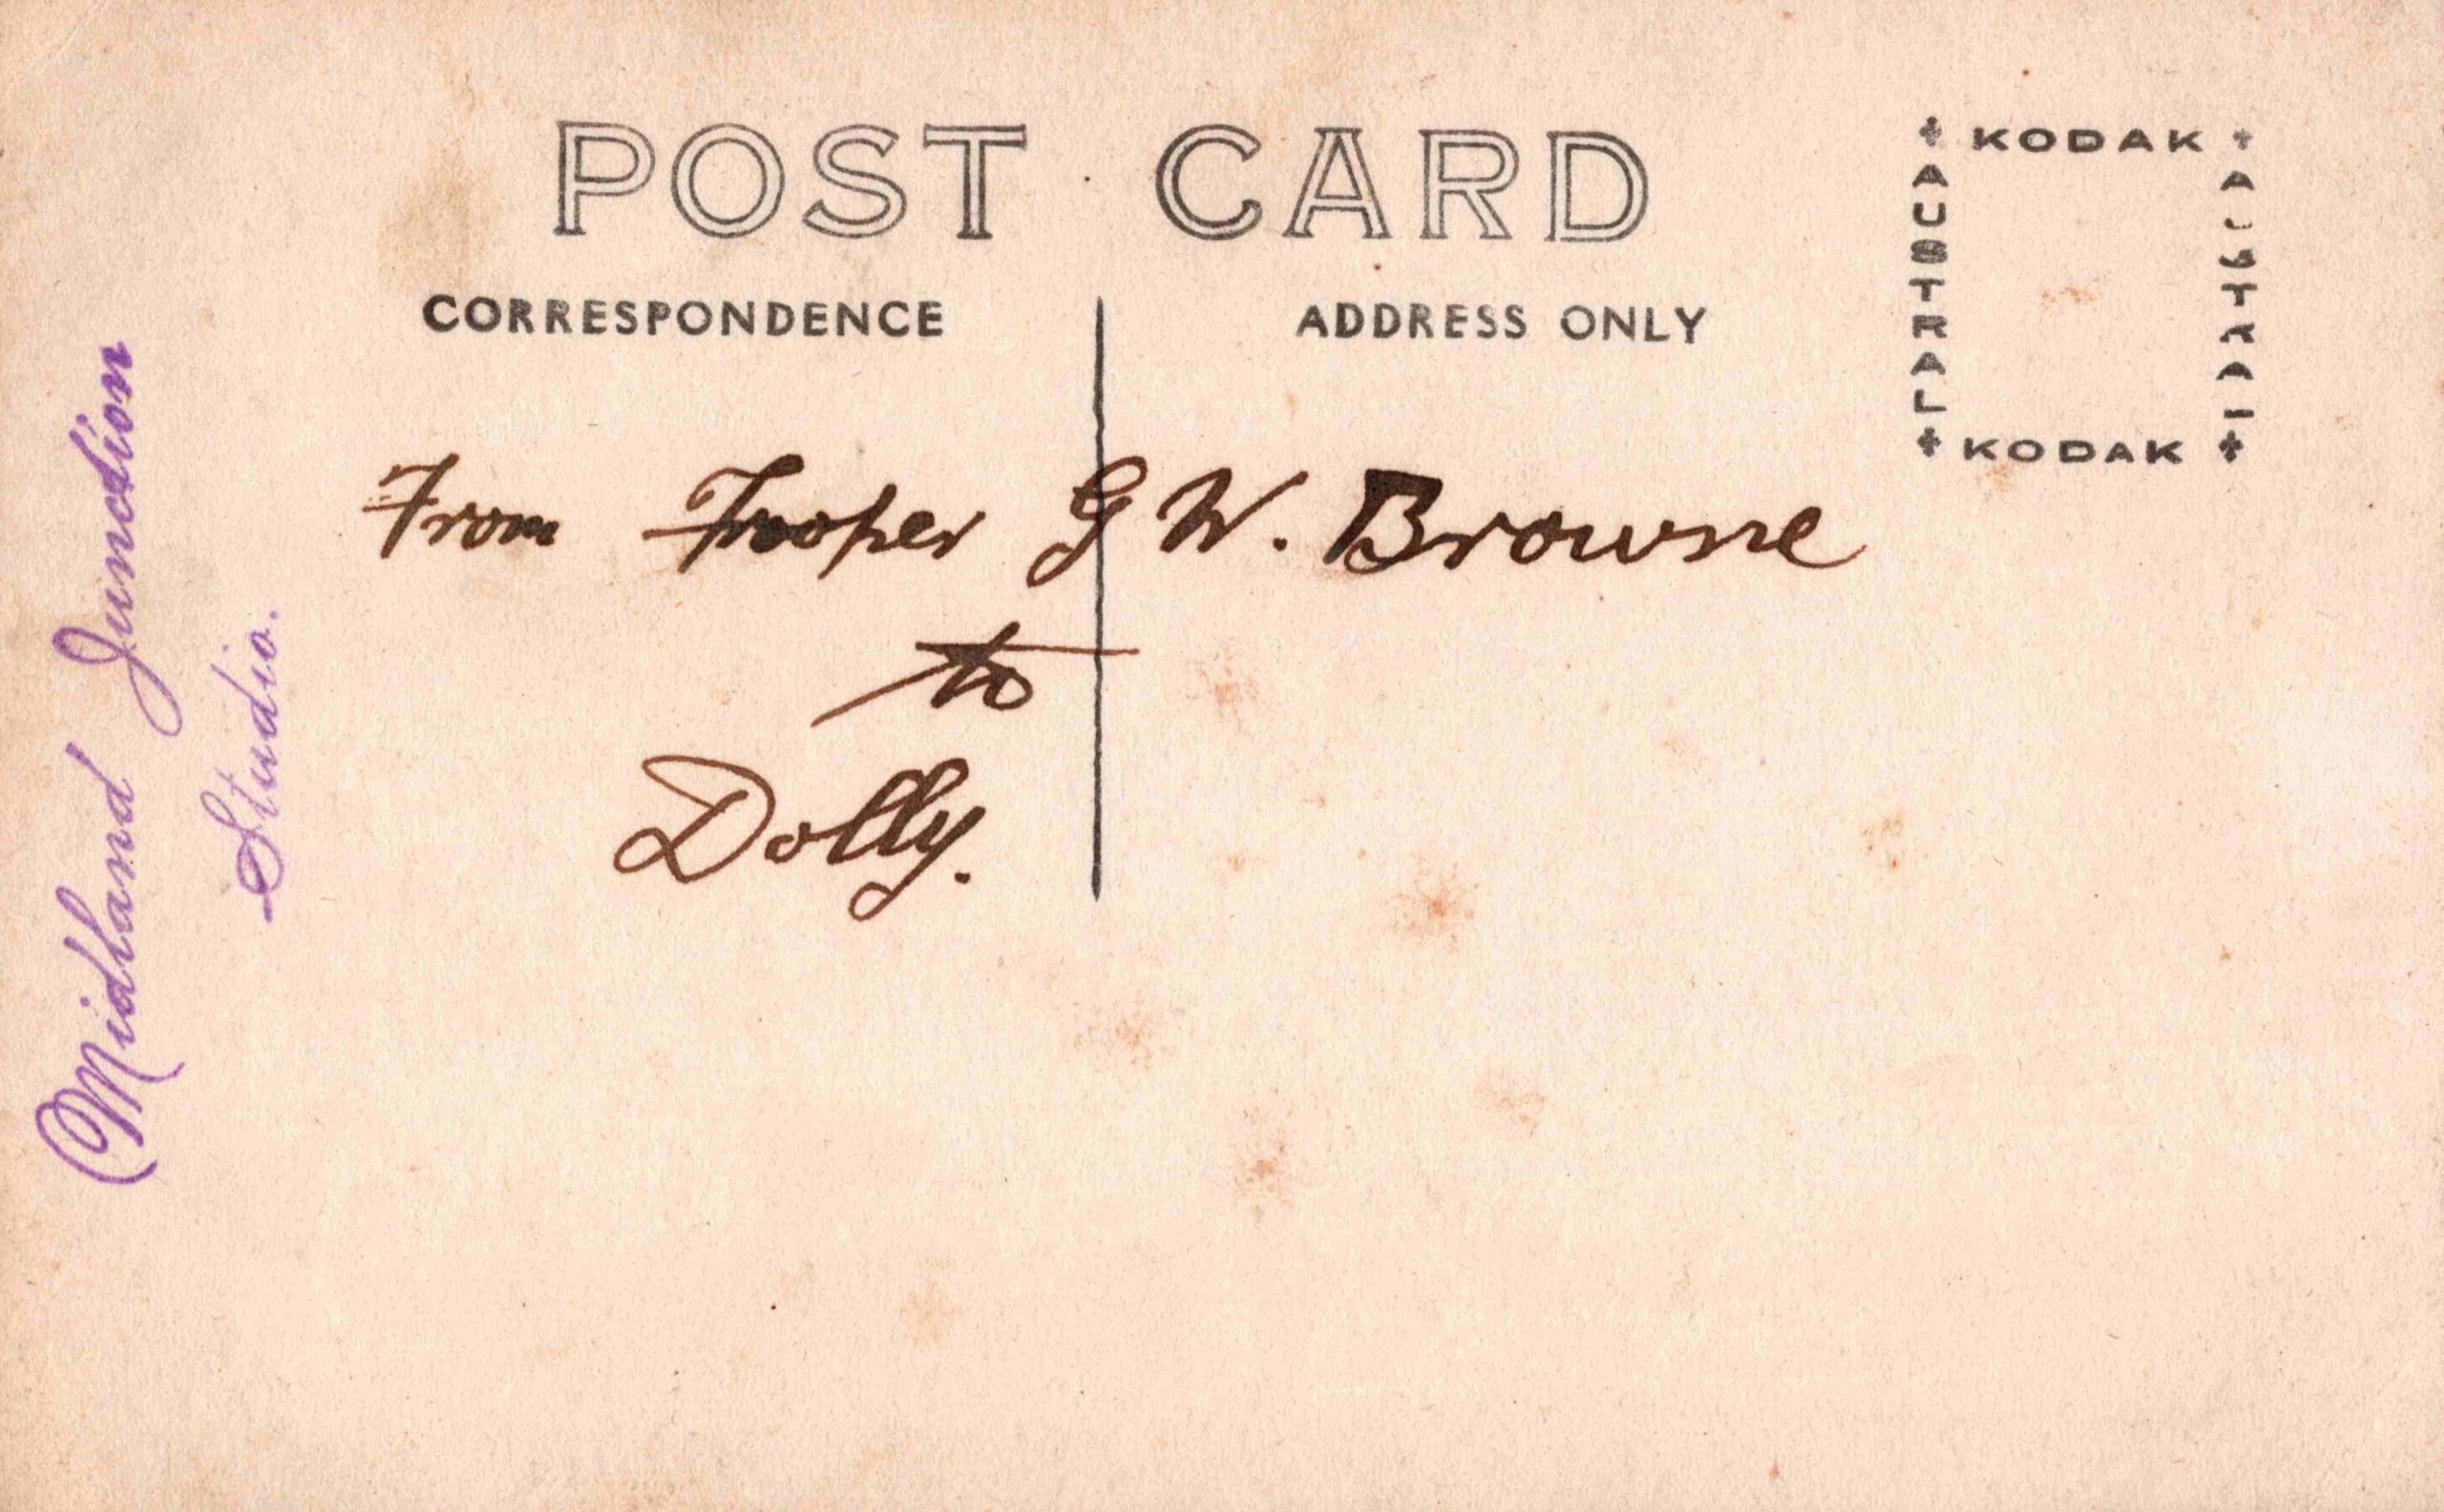 POST CARD
CORRESPONDENCE
ADDRESS ONLY
KODAK
AUSTRAL
AUSTRAL
KODAK
From Trooper G W. Browne
to
Dolly.
Midland Junction
Studio.